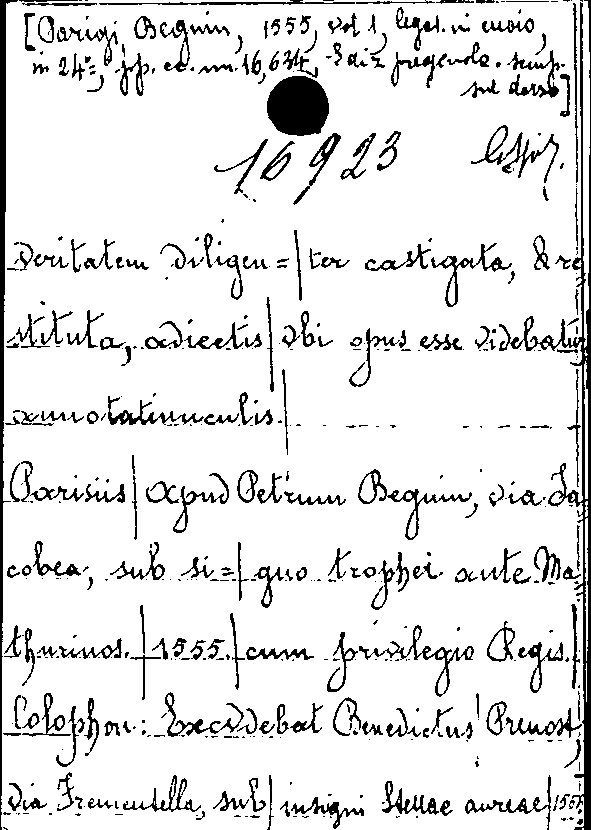 [Parigi, Beguin, 1555, vol 1, legat. in cuoio,
in 24°, pp. cc. nn. 16,634, - Ediz pregevole. stemp.
sul dorso]
16923
veritatem diligen=|ter castigata, & re
stituta, adiectis|vbi opus esse videbatur
annotatiunculis.|
Parisiis|apud Petrum Beguin, via Ja
cobea, sub si=|gno trophei ante Ma
thurinos.|1555.|cum privilegio Regis.|
Colophon: Excvdebat Benedictus Prevost,
via Frementella, sub|insigni Stellae aureae|1555